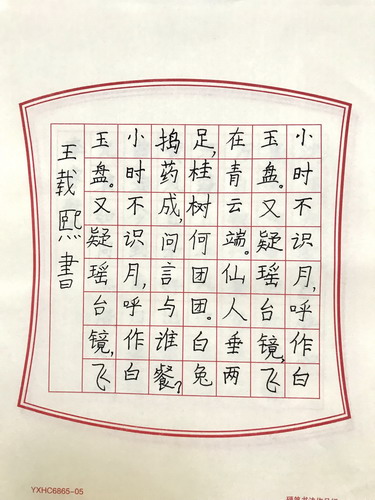 小时不识月,呼作白
玉盘。又疑瑶台镜,飞
在青云端。仙人垂两
足,桂树何团团。白兔
捣药成,问言与谁餐?
小时不识月,呼作白
玉盘。又疑瑶台镜,飞
王载熙書
YXHC6865-05